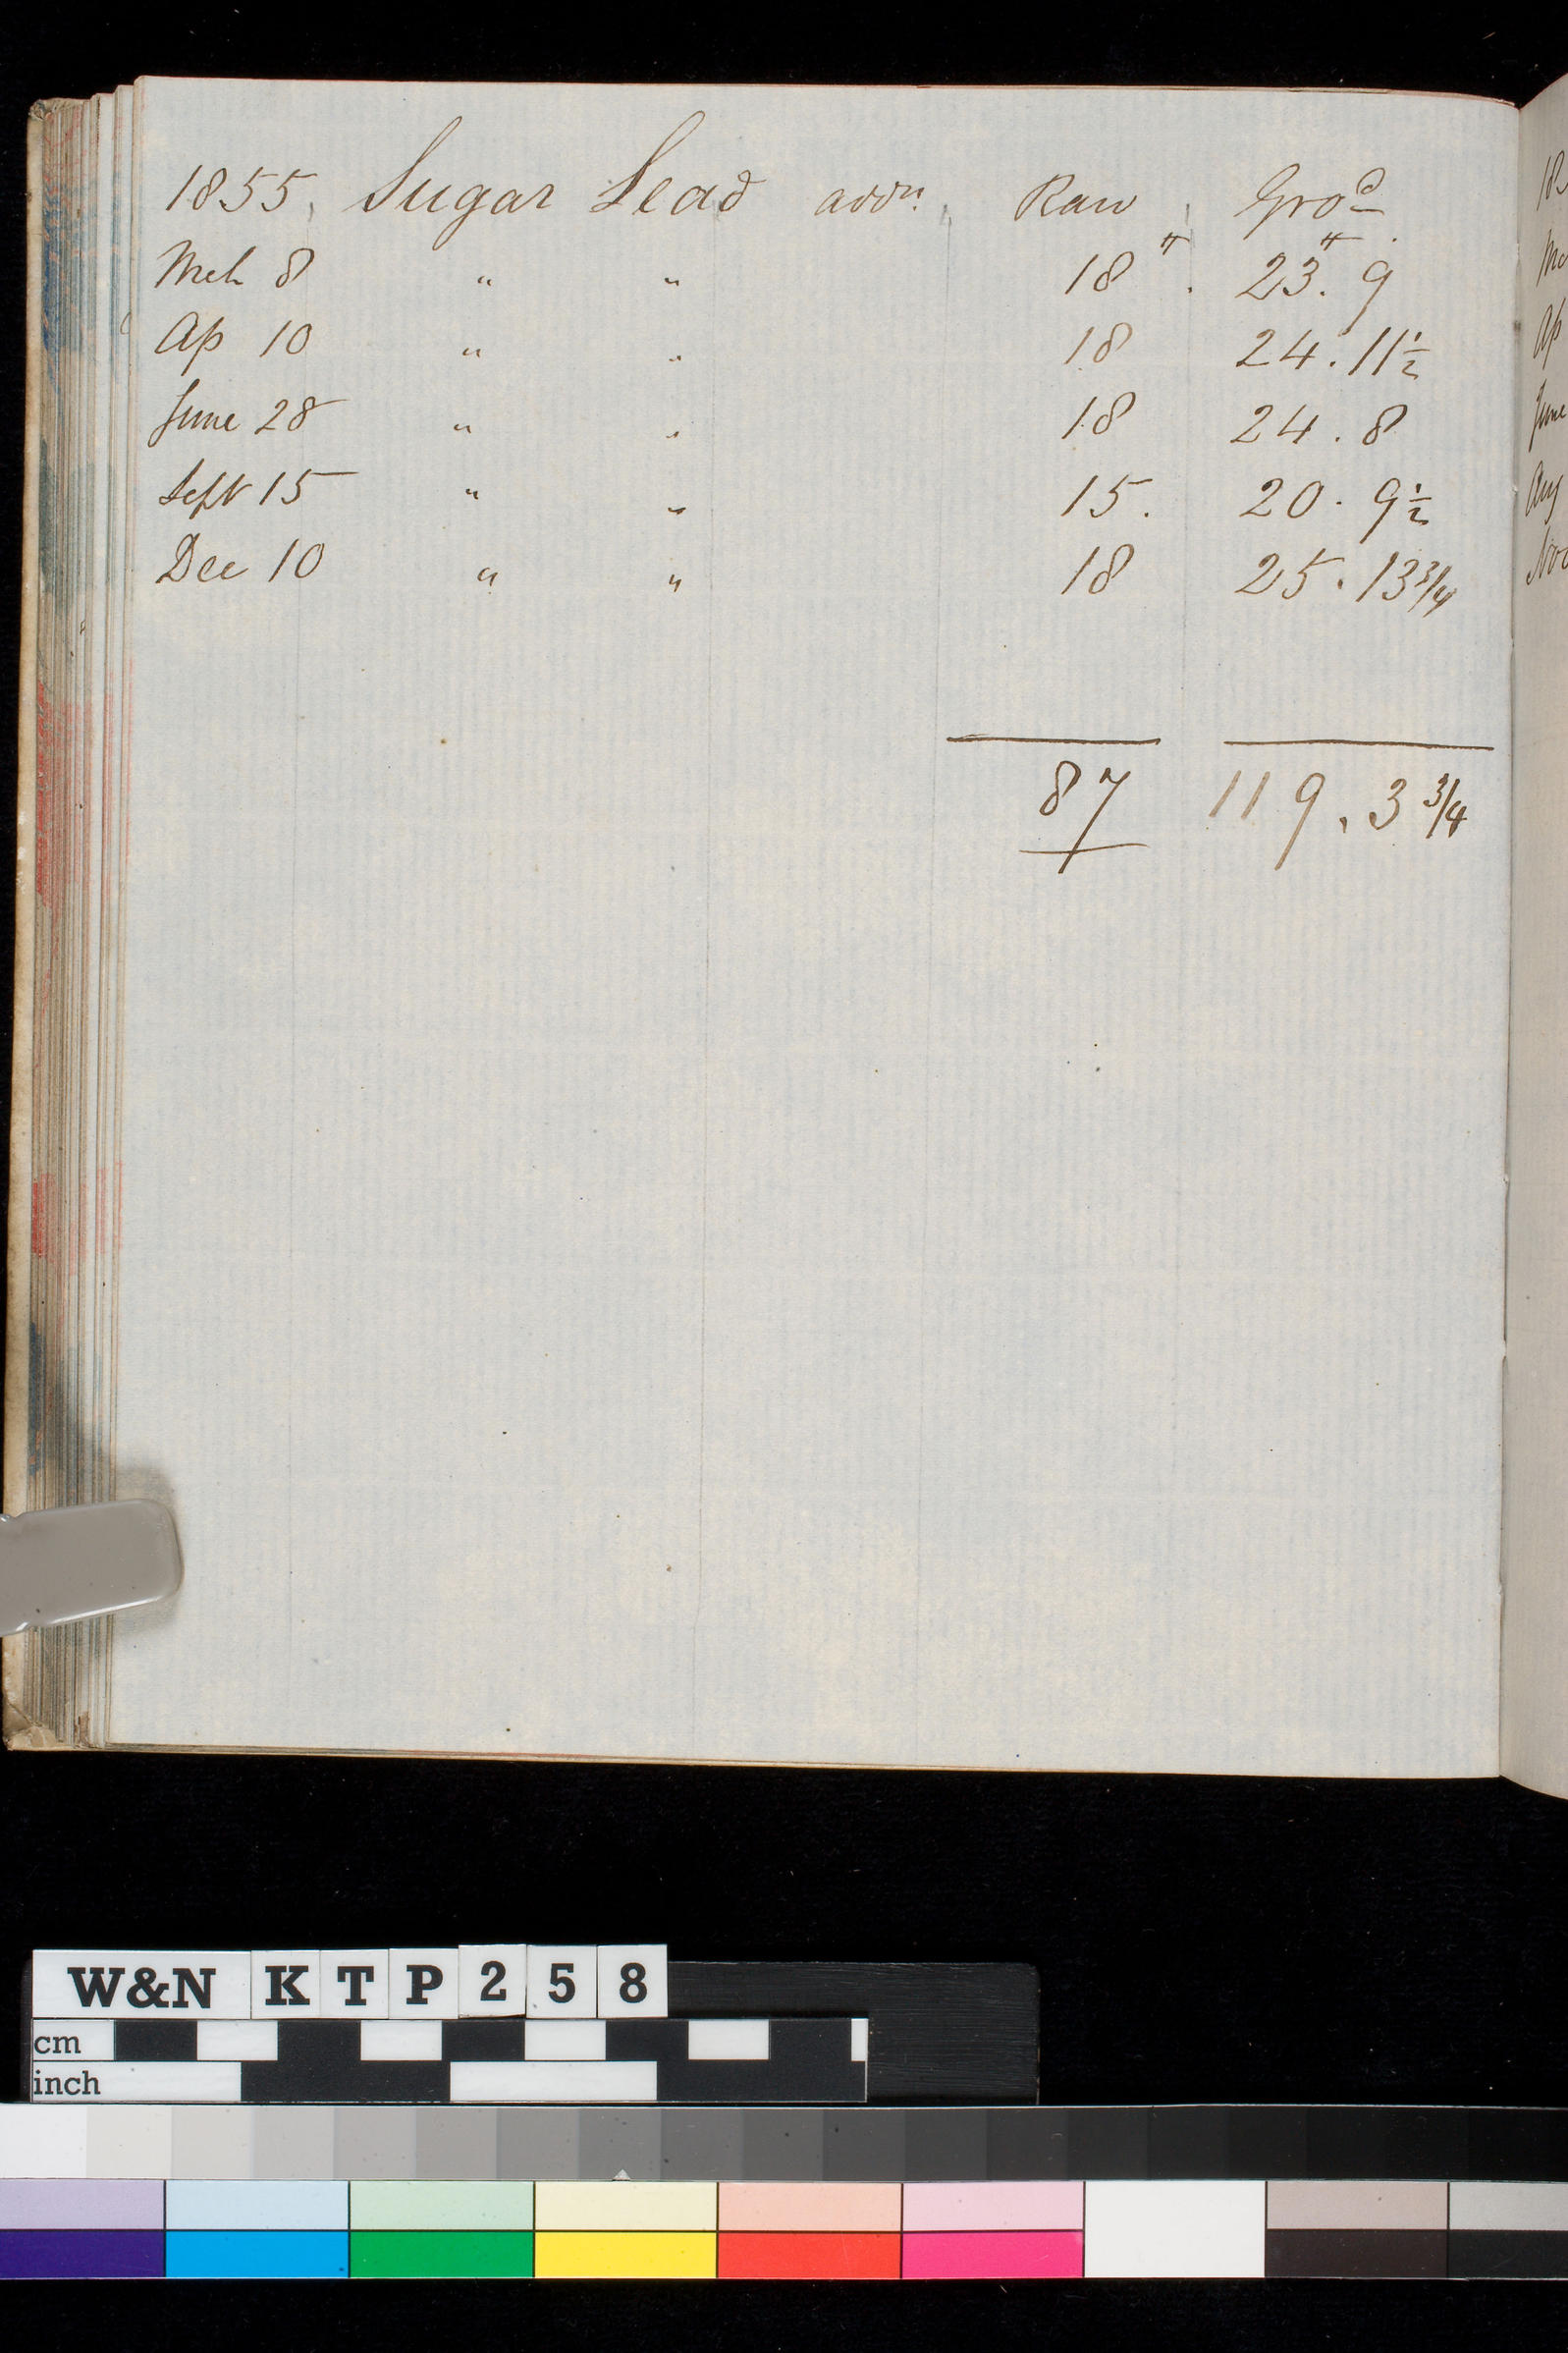 1855 Sugar Lead addn. Raw Gro͟d
Mch 8 " " 18 ℔ . 23 ℔. 9
Ap 10 " " 18 24. 11½
June 28 " " 18 24. 8
Sept 15 " " 15. 20. 9½
Dec 10 " " 18 25. 13 3/4
87 119. 3 3/4
18
Ap
June
Aug
Nov
W&N K T P 2 5 8
cm
inch